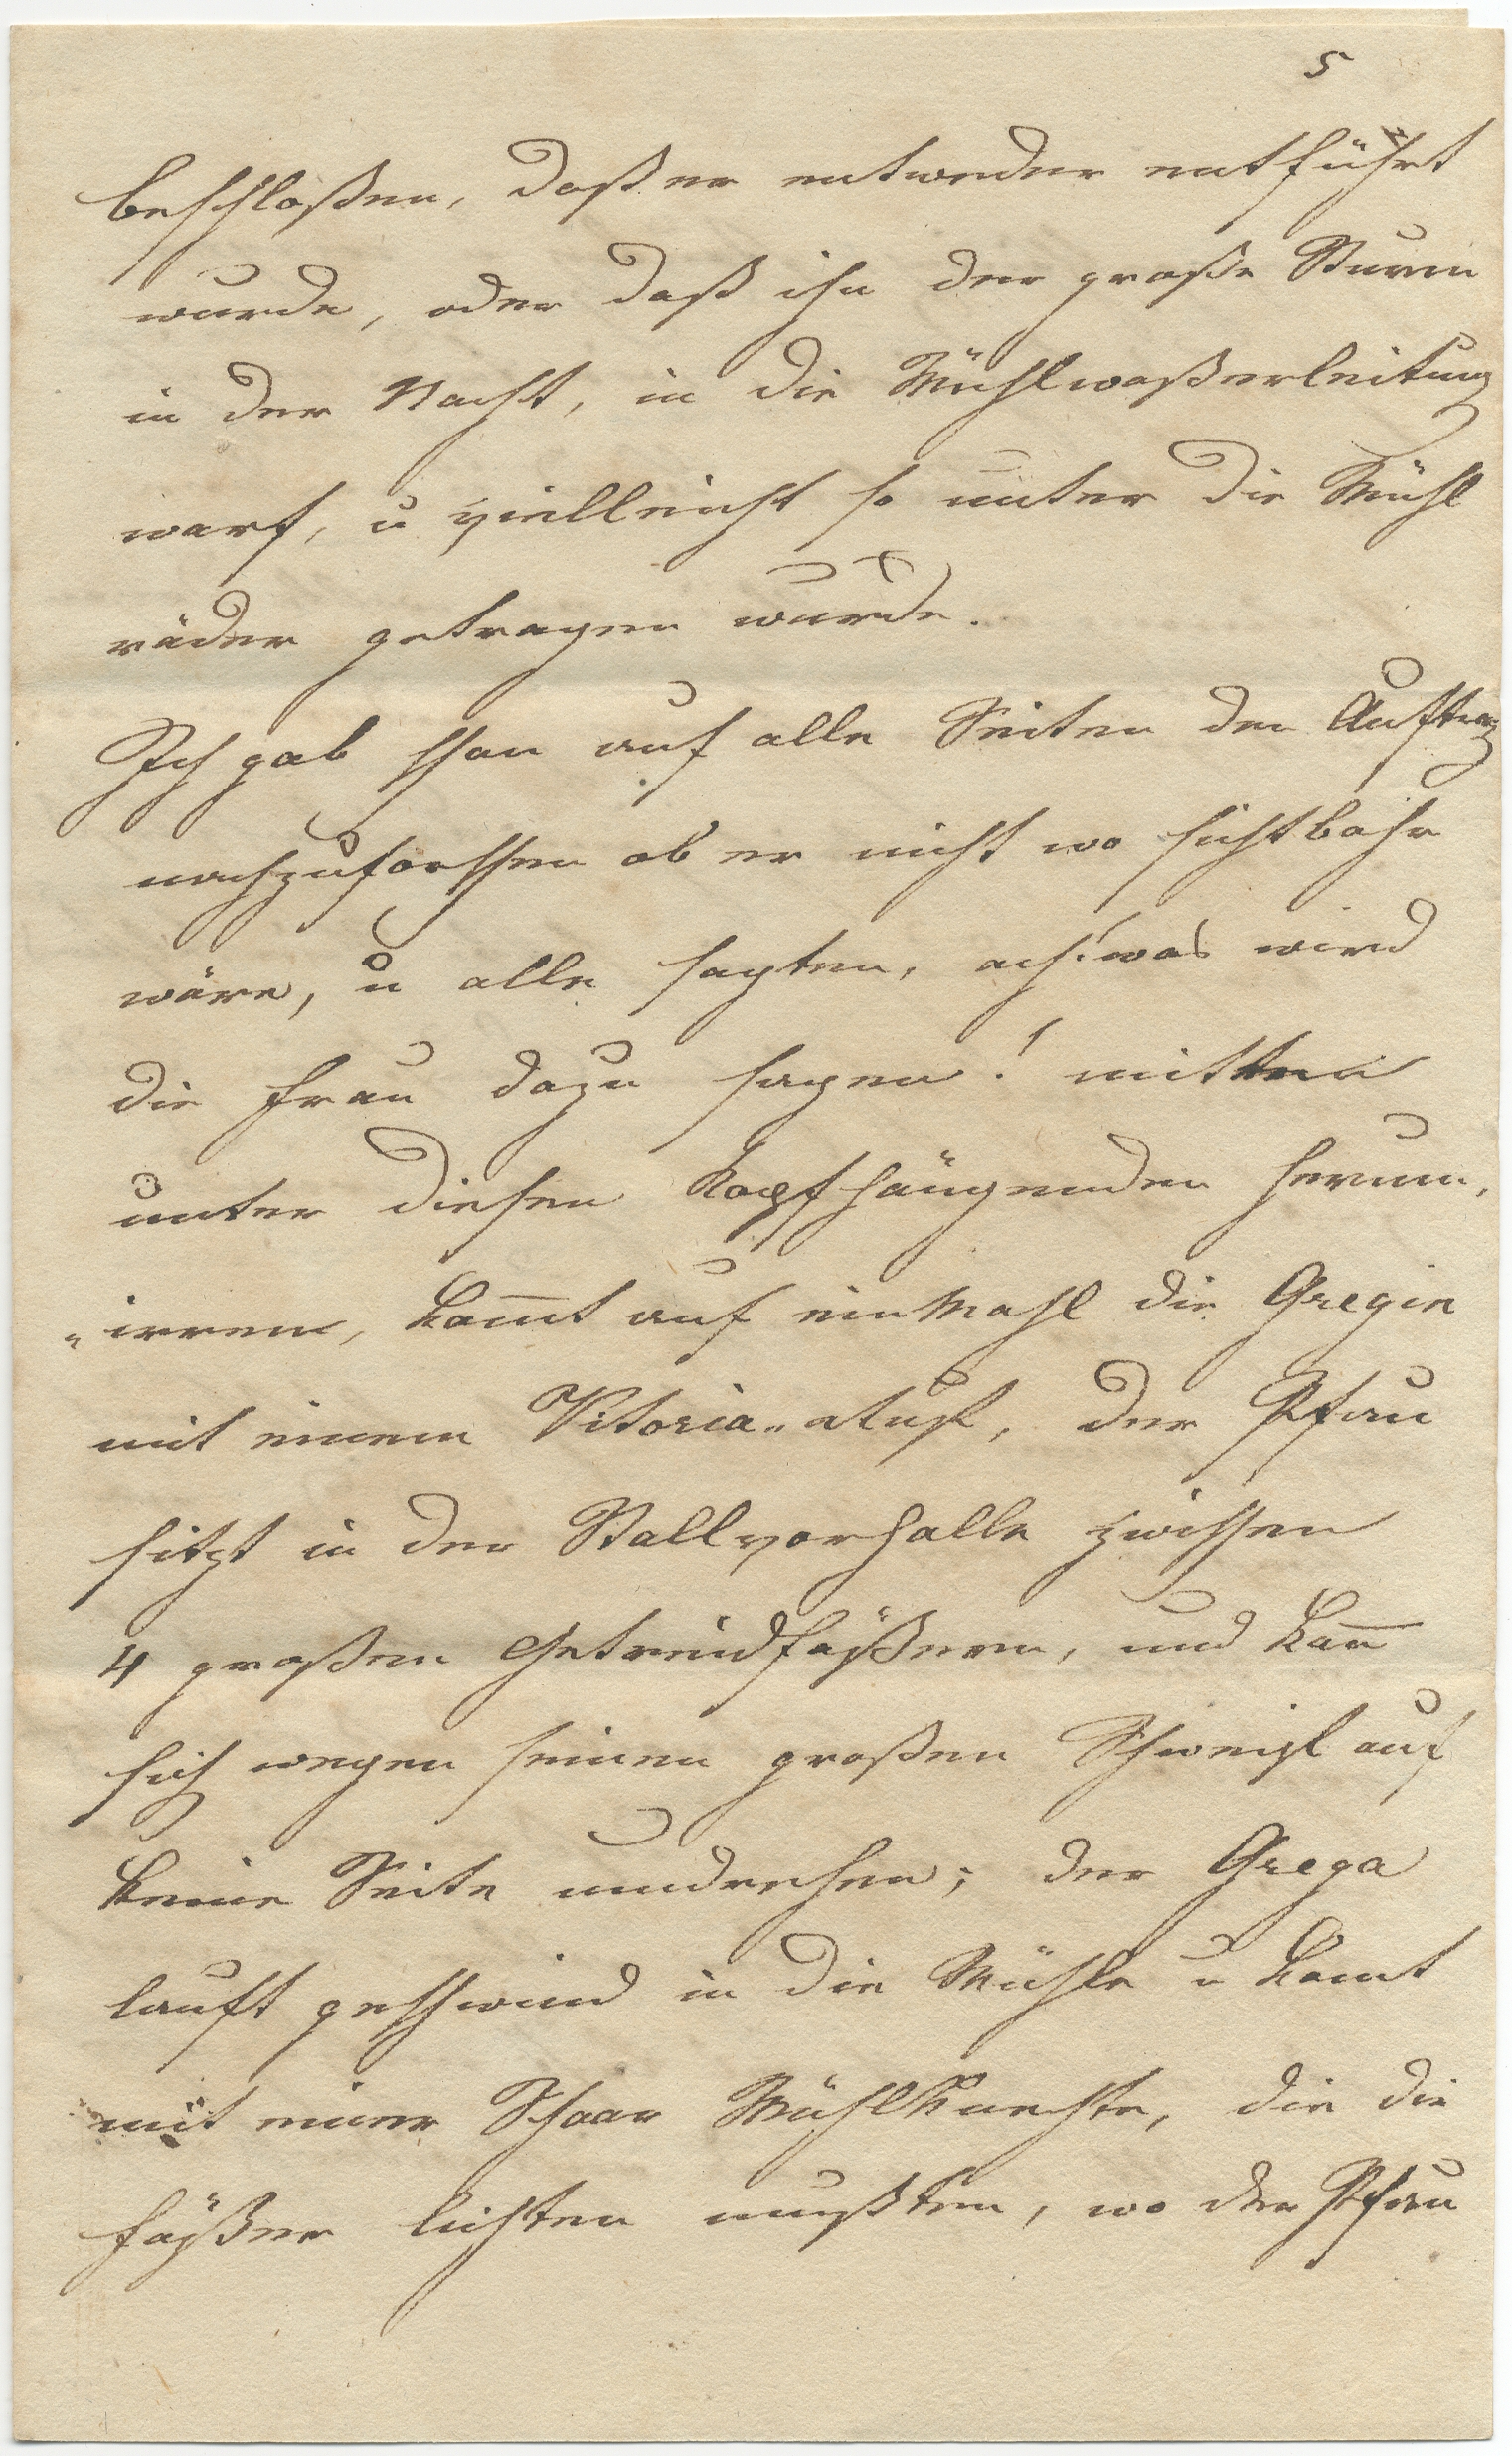 5
beschloßen, daß er entweder entführt
wurde, oder daß ihn der große Sturm
in der Nacht, in die Mühlwaßerleitung
warf, u vielleicht so unter die Mühl
räder getragen wurde.
Ich gab schon auf alle Seiten den Auftrag
nachzuforschen ob er nicht wo sichtbahr
wäre, u alle sagten, ach! was wird
die Frau dazu sagen! mitten
unter diesen Kopfhängenden herum,
„irren, kom̄t auf einMahl die Gregin
mit einem Vitoria„ aRuf, der Pfau
sitzt in der Stallvorhalle zwischen
4 großen Getreidfäßern, und kan̄
sich wegen seinen großen Schweif auf
keine Seite umdrehen; der Grega
lauft geschwind in die Mühle u komt
mit einer Schaar Mühlknechte, die die
Fäßer lichten mußten, wo der Pfau